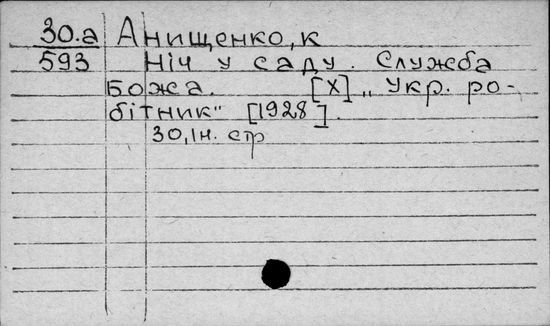 30.а Анищенко, к
593 Ніч у саду. Служба
Божа. [Х] „Укр. ро-
бітник" [1928].
30, Ін. стр